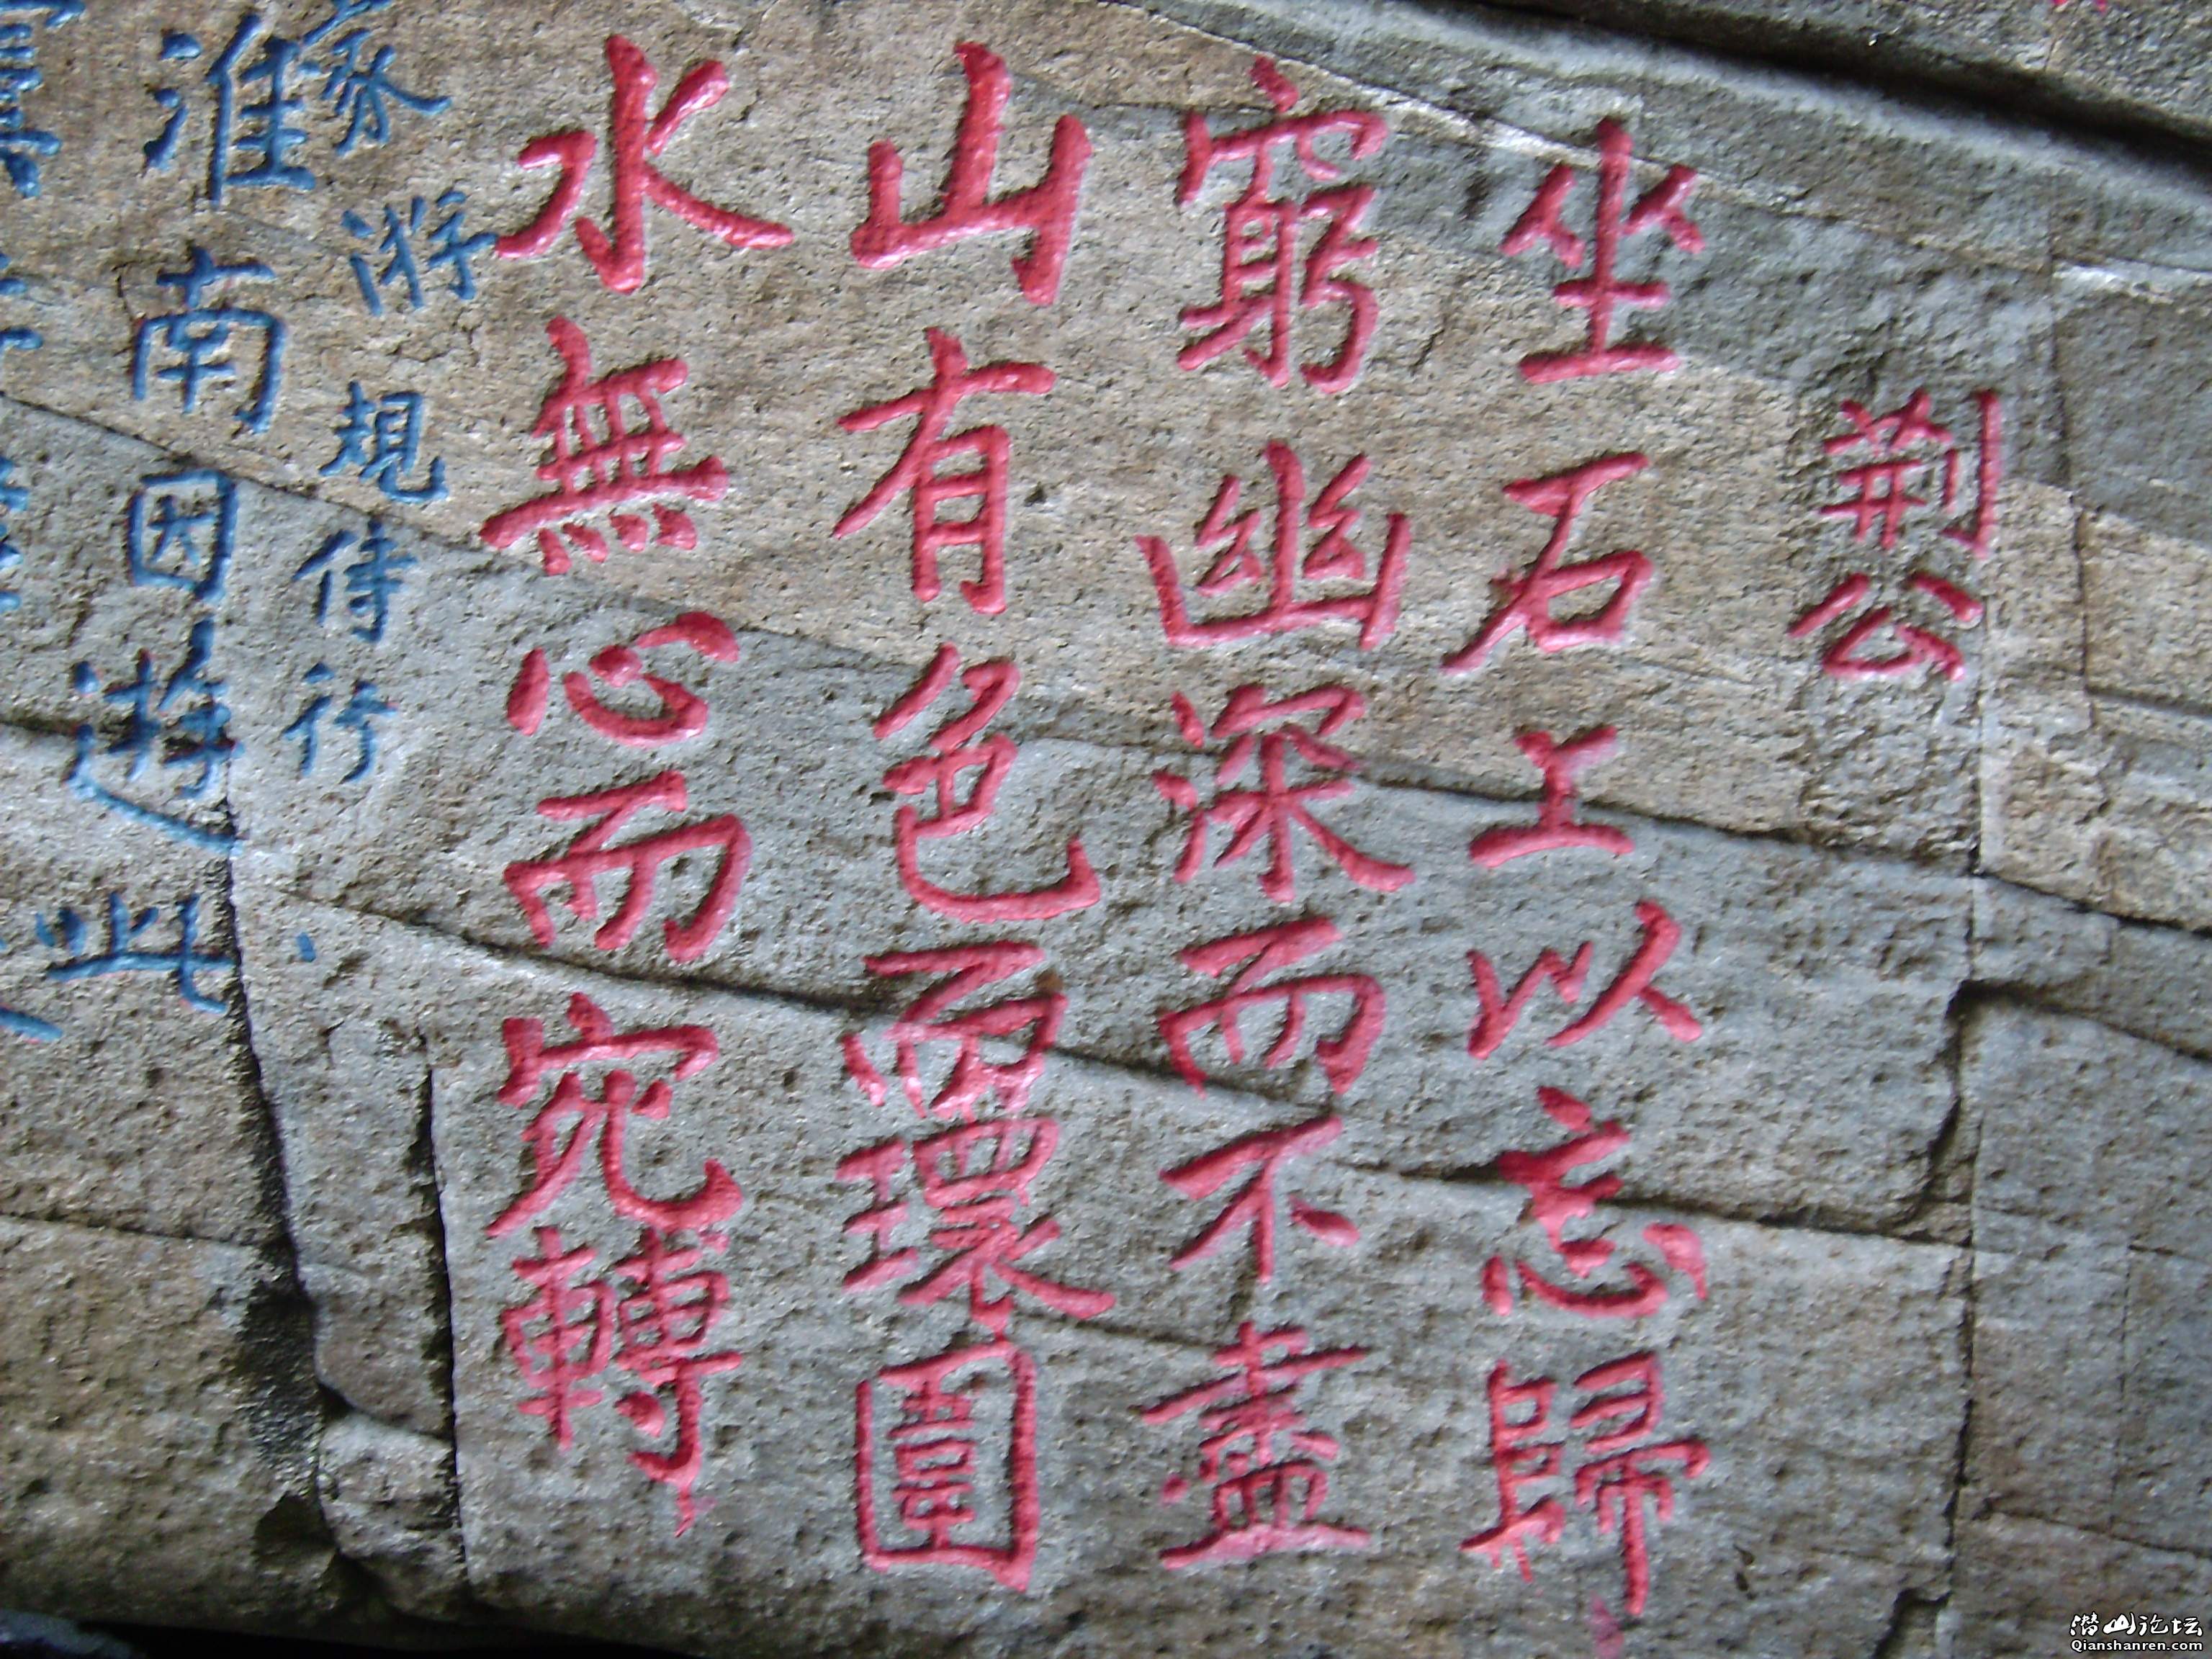 荆公
水無心而宛轉
山有色而環圍
窮幽深而不盡
坐石上以忘歸
游規侍行
淮南因遊此
潜山论坛
Qianshanren.com